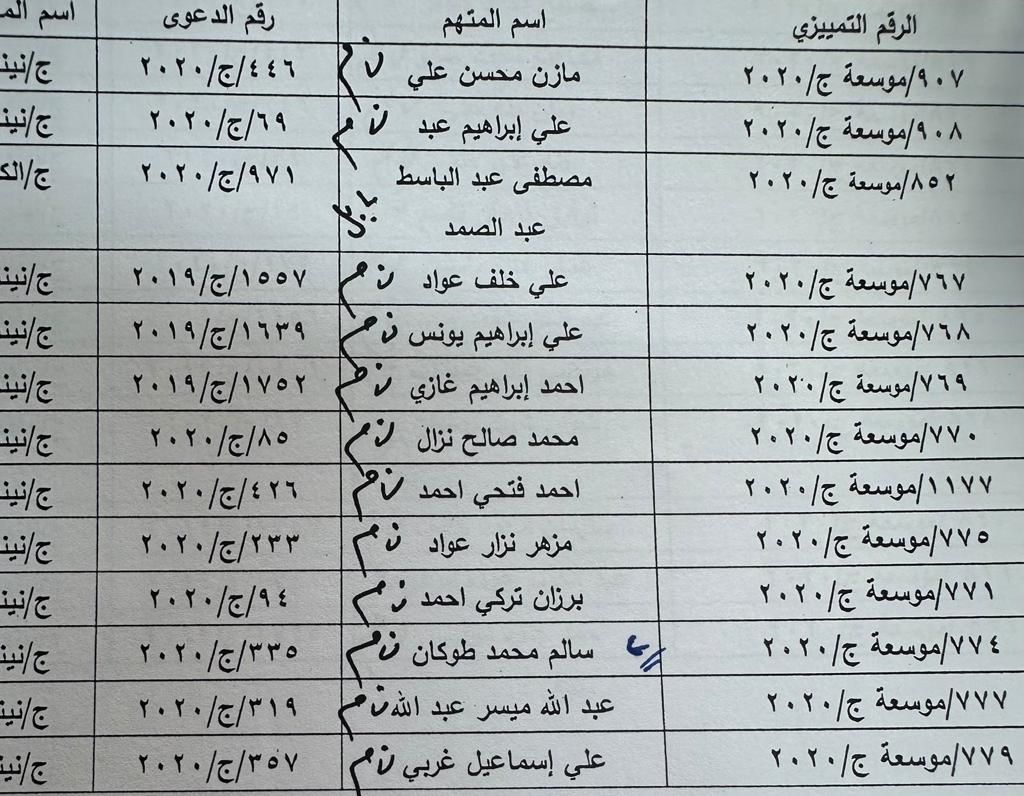 الرقم التمييزي اسم المتهم رقم الدعوى اسم
٩٠٧/موسعة ج/٢٠٢٠ مازن محسن علي ٤٤٦/ج/٢٠٢٠ ج/
٩٠٨/موسعة ج/٢٠٢٠ علي إبراهيم عبد ٦٩/ج/٢٠٢٠ ج/
٨٥٢/موسعة ج/٢٠٢٠ مصطفى عبد الباسط ٩٧١/ج/٢٠٢٠ ج/
عبد الصمد
٧٦٧/موسعة ج/٢٠٢٠ علي خلف عواد ١٥٥٧/ج/٢٠١٩ ج/
٧٦٨/موسعة ج/٢٠٢٠ علي إبراهيم يونس ١٦٣٩/ج/٢٠١٩ ج/
٧٦٩/موسعة ج/٢٠٢٠ احمد إبراهيم غازي ١٧٥٢/ج/٢٠١٩ ج/
٧٧٠/موسعة ج/٢٠٢٠ محمد صالح نزال ٨٥/ج/٢٠٢٠ ج/
١١٧٧/موسعة ج/٢٠٢٠ احمد فتحي احمد ٤٢٦/ج/٢٠٢٠ ج/
٧٧٥/موسعة ج/٢٠٢٠ مزهر نزار عواد ٢٣٣/ج/٢٠٢٠ ج/
٧٧١/موسعة ج/٢٠٢٠ برزان تركي احمد ٩٤/ج/٢٠٢٠ ج/
٧٧٤/موسعة ج/٢٠٢٠ سالم محمد طوكان ٣٣٥/ج/٢٠٢٠ ج/
٧٧٧/موسعة ج/٢٠٢٠ عبد الله ميسر عبد الله ٣١٩/ج/٢٠٢٠ ج/
٧٧٩/موسعة ج/٢٠٢٠ علي إسماعيل غربي ٣٥٧/ج/٢٠٢٠ ج/